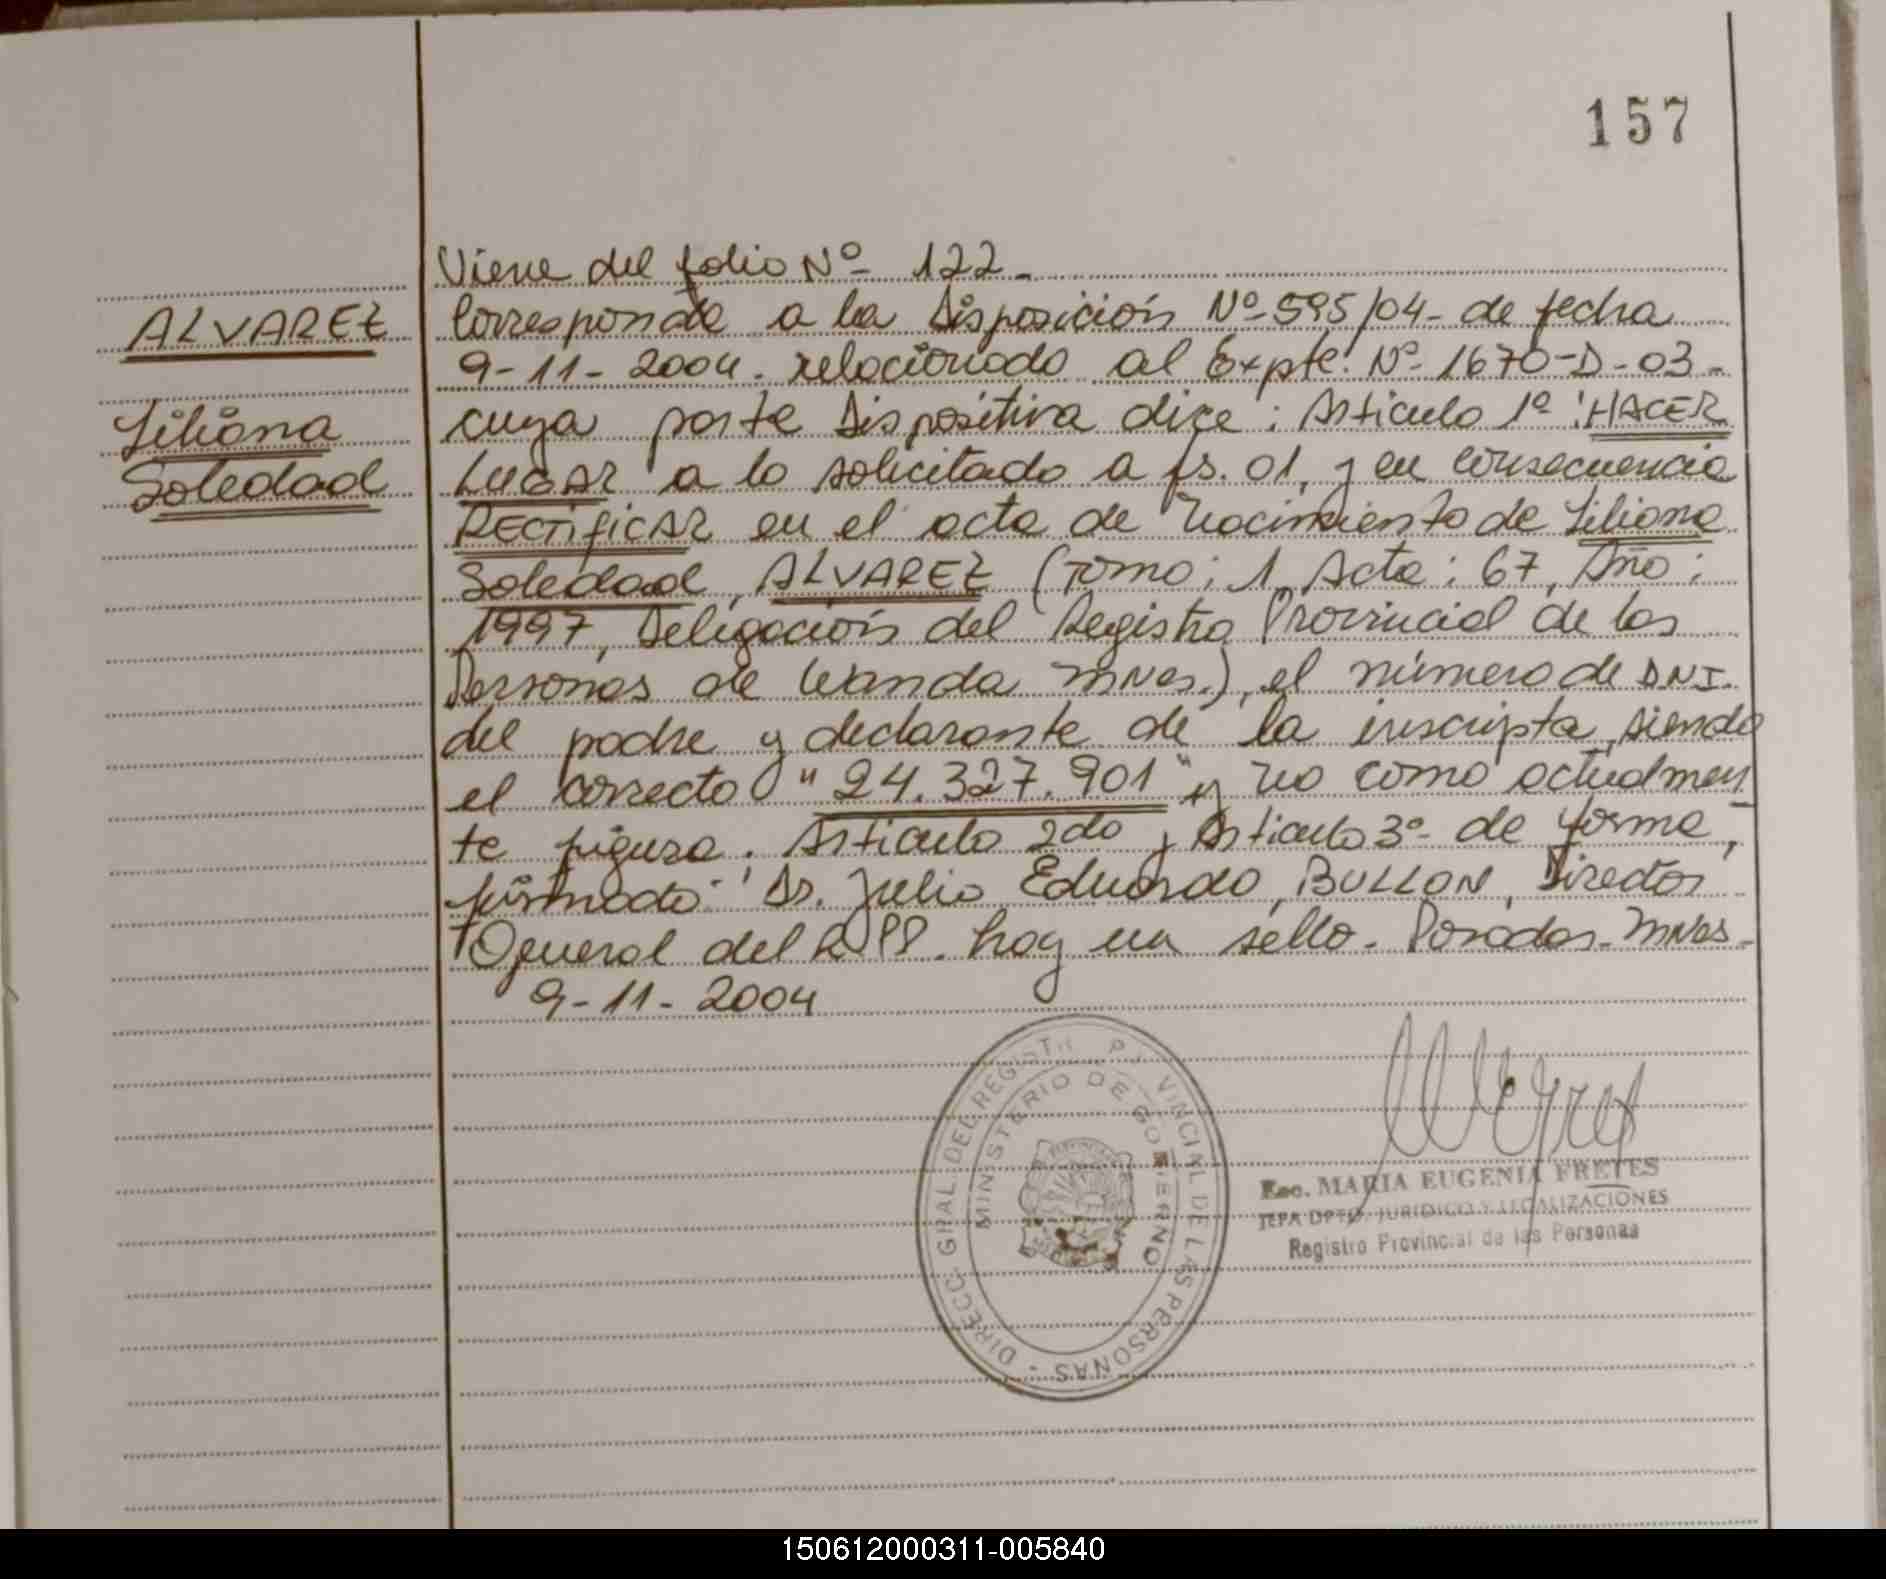 157
Viene del folio Nº 122-
ALVAREZ
Liliana
Soledad
Corresponde a la Disposición Nº 595/04- de fecha
9-11-2004. relacionado al Expte. Nº 1670-D-03-
cuya parte Dispositiva dice: Articulo 1º: HACER
LUGAR a lo solicitado a fs. 01, y en consecuencia
RECTIFICAR en el acta de nacimiento de Liliana
Soledad, ALVAREZ (Tomo: 1, Acta: 67, Año:
1997, Delegación del Registro Provincial de las
Personas de Wanda Mnes.), el número de DNI.
del padre y declarante de la inscripta, siendo
el correcto "24.327.901" y no como actualmen
te figura. Articulo 2do y Articulo 3º de forma,
firmado: Dr. Julio Eduardo, BULLON, Director
General del RPP. hay un sello. Posadas-Mnes-
9-11-2004
DIRECC. GRAL. DEL REGISTR PR VINCIAL DE LAS PERSONAS -
MINISTERIO DE GOBIERNO
Esc. MARIA EUGENIA FRETES
JEFA DPTO. JURIDICO Y LEGALIZACIONES
Registro Provincial de las Personas
150612000311-005840